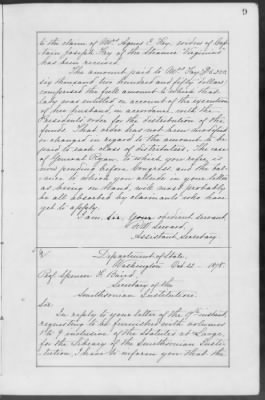 9
to the claim of Mrs Agnes E. Fry, widow of Cap-
tain Joseph Fry of the Steamer Virginius
has been received.
The amount paid to Mrs Fry $6,250,
six thousand two hundred and fifty dollars
comprised the full amount to which that
lady was entitled on account of the execution
of her husband in accordance with the
President's order for the distribution of the
funds. That order has not been modified
or changed in regard to the amounts to be
paid to each class of distributees. The case
of General Ryan, to which you refer, is
now pending before Congress and the bal-
ance to which you allude in your letter
as being on hand, will most probably
be all absorbed by claimants who have
yet to apply.
I am, Sir, Your obedient servant,
Seward,
Assistant Secretary.
Department of State,
Washington Oct. 23 1878.
Prof Spencer F. Baird,
Secretary of the
Smithsonian Institution.
Sir:
In reply to your letter of the instant,
requesting to be furnished with volumes
1 to 9 inclusive of the Statutes at Large,
for the Library of the Smithsonian Insti-
tution, I have to inform you that the